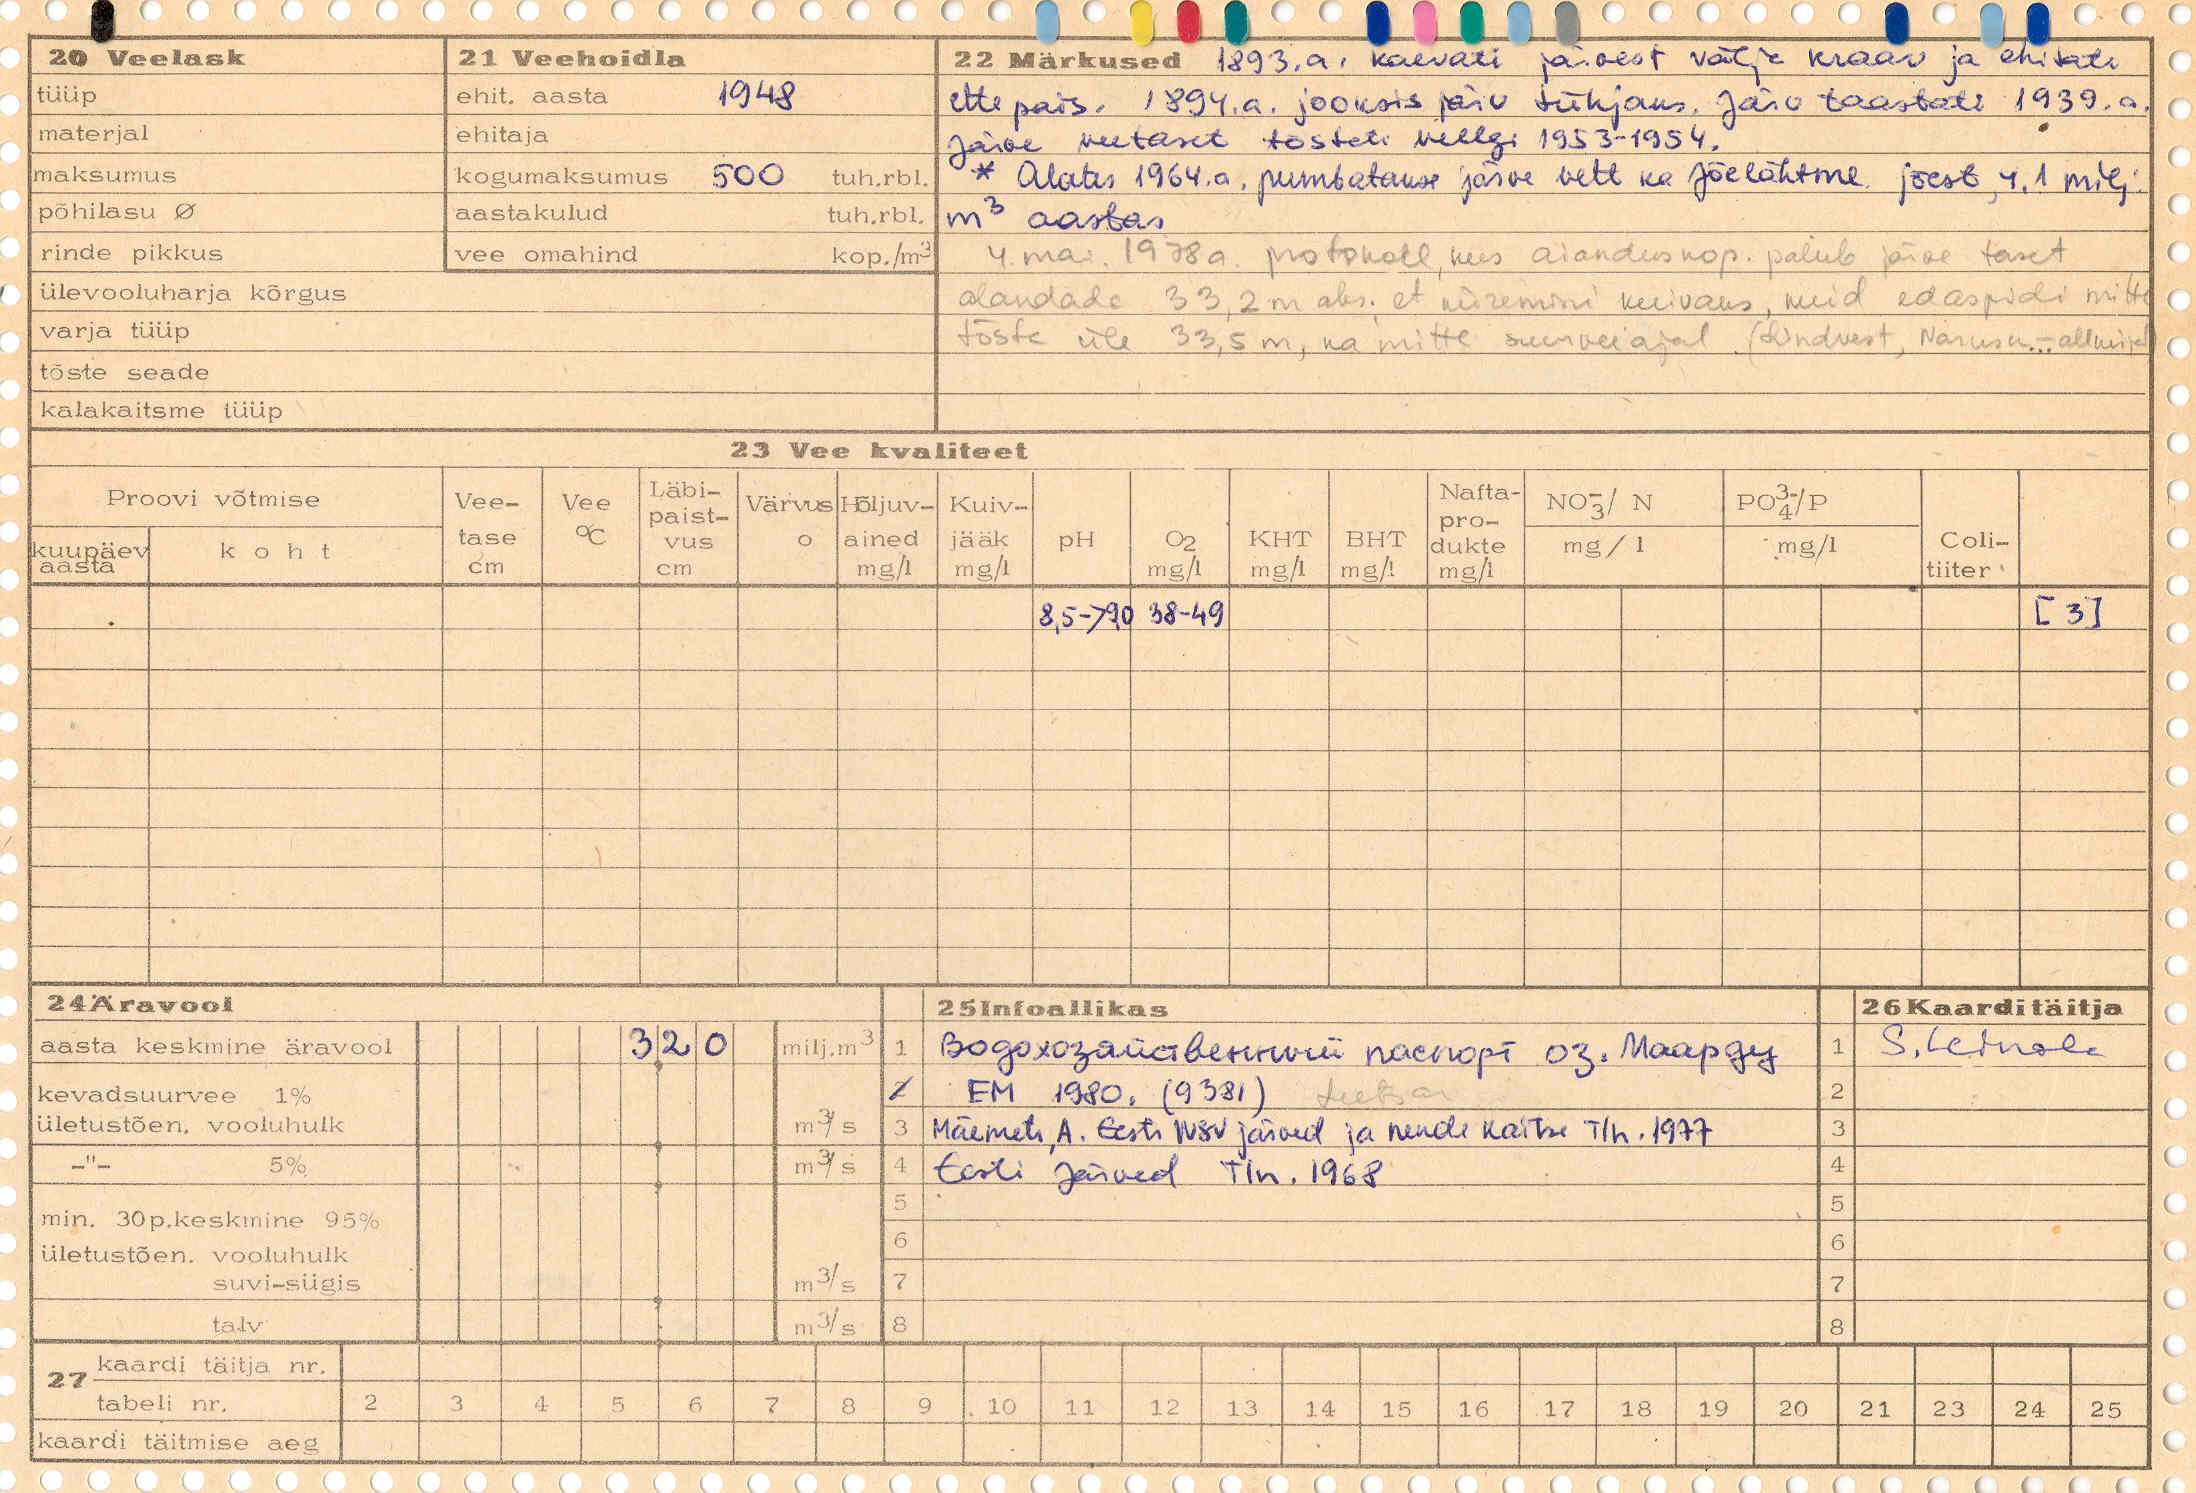 20 Veelask
tüüp
materjal
maksumus
põhilasu Ø
rinde pikkus
ülevooluharja kõrgus
varja tüüp
tõste seade
kalakaitsme tüüp
21 Veehoidla
ehit. aasta 1948
ehitaja
kogumaksumus 500 tuh.rbl.
aastakulud tuh.rbl.
vee omahind kop./m³
22 Märkused 1893.a. kaevati järvest välja kraav ja ehitati
ette pais. 1894.a. jooksis järv tühjaks. Järv taastati 1939.a.
Järve veetaset tõsteti veelgi 1953-1954.
* Alates 1964.a. pumbatakse järve vett ka Jõelähtme jõest, 4,1 milj.
m³ aastas
4. mai. 1978 a. protokoll, kus aianduskop. palub järve taset
alandada 33,2 m abs. et kiiremini kuivaks, kuid edaspidi mitte
tõsta üle 33,5 m, ka mitte suurvee ajal
23 Vee kvaliteet
Proovi võtmise
kuupäev aasta
koht
Vee-tase cm
Vee °C
Läbi-paist-vus cm
Värvus o
Hõljuv-ained mg/l
Kuiv-jääk mg/l
pH
O2 mg/l
KHT mg/l
BHT mg/l
Nafta-pro-dukte mg/l
NO3⁻/ N mg/l
PO4³⁻/P mg/l
Coli-tiiter
8,5->9,0 38-49 [3]
24 Äravool
aasta keskmine äravool 320 milj.m³
kevadsuurvee 1%
ületustõen. vooluhulk m³/s
-"- 5% m³/s
min. 30p.keskmine 95%
ületustõen. vooluhulk
suvi-sügis m³/s
talv m³/s
25 Infoallikas
1 Водохозяйственный паспорт оз. Маарду
2 EM 1980. (9381)
3 Mäemets, A. Eesti NSV järved ja nende kaitse Tln. 1977
4 Eesti Järved Tln. 1968
5
6
7
8
26 Kaardi täitja
1 S.
2
3
4
5
6
7
8
27 kaardi täitja nr.
tabeli nr. 2 3 4 5 6 7 8 9 10 11 12 13 14 15 16 17 18 19 20 21 23 24 25
kaardi täitmise aeg